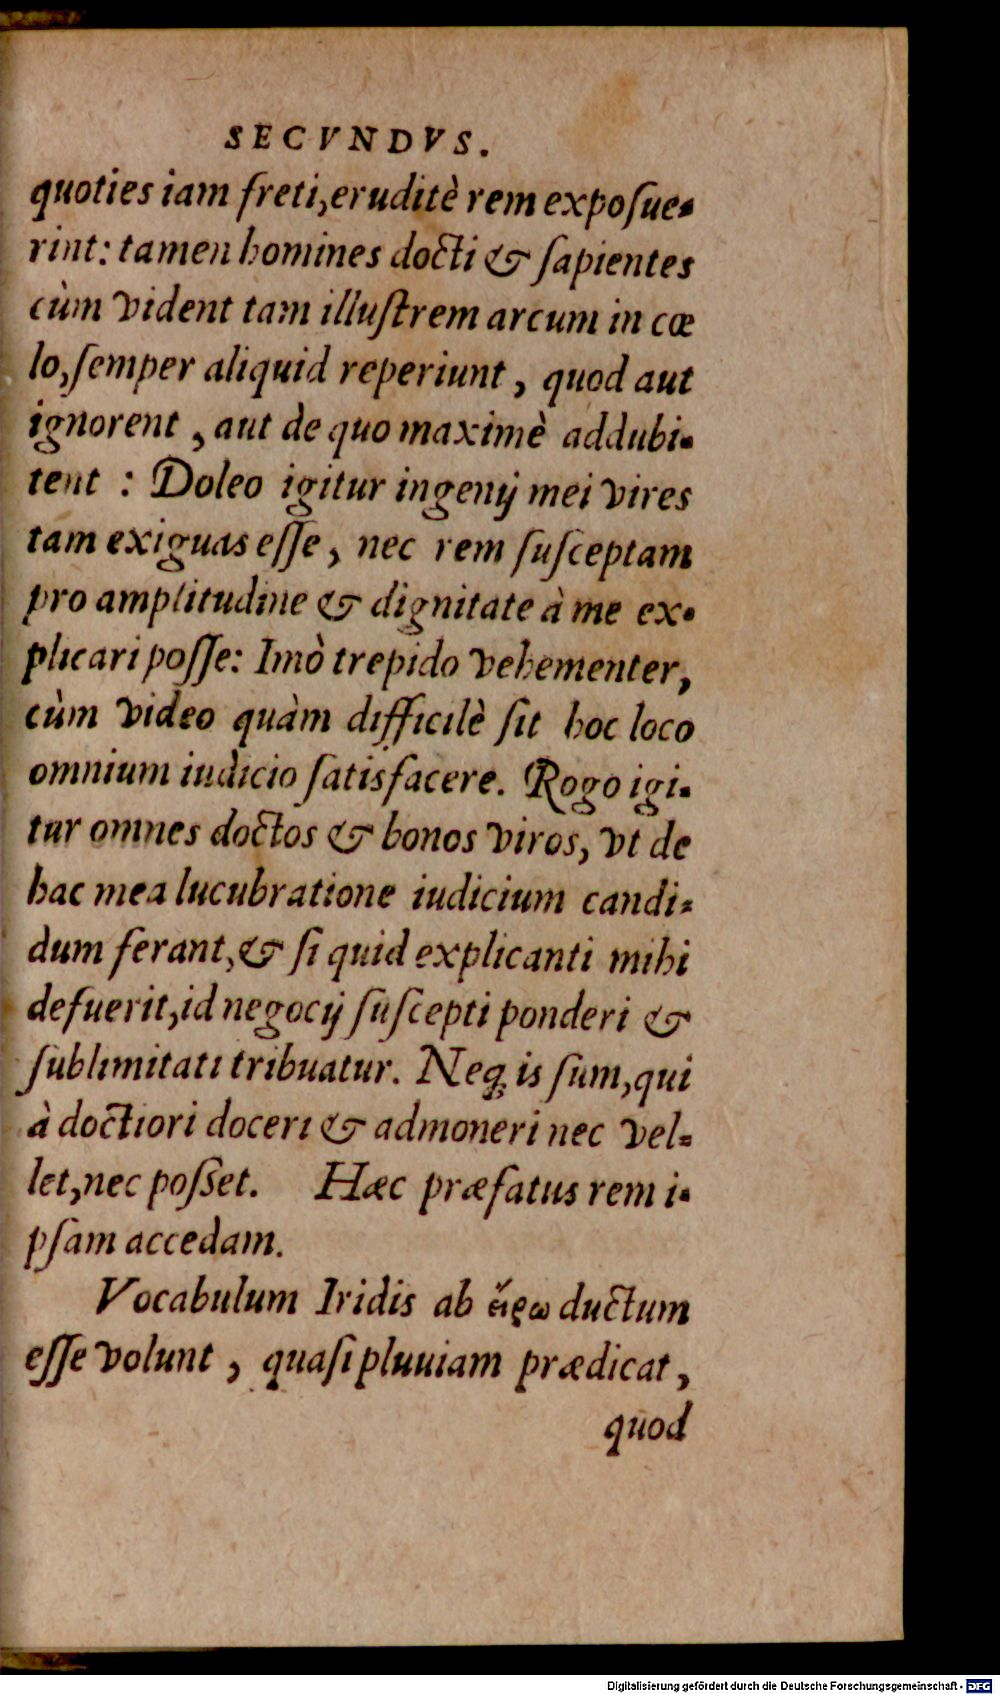 SECVNDVS.
quoties iam freti, eruditè rem exposue-
rint: tamen homines docti & sapientes
cùm vident tam illustrem arcum in cœ
lo, semper aliquid reperiunt, quod aut
ignorent, aut de quo maximè addubi-
tent : Doleo igitur ingenij mei vires
tam exiguas esse, nec rem susceptam
pro amplitudine & dignitate à me ex-
plicari posse: Imò trepido vehementer,
cùm video quàm difficilè sit hoc loco
omnium iudicio satisfacere. Rogo igi-
tur omnes doctos & bonos viros, vt de
hac mea lucubratione iudicium candi-
dum ferant, & si quid explicanti mihi
defuerit, id negocij suscepti ponderi &
sublimitati tribuatur. Neq; is sum, qui
à doctiori doceri & admoneri nec vel-
let, nec posset. Hæc præfatus rem i-
psam accedam.
Vocabulum Iridis ab εἴρω ductum
esse volunt, quasi pluuiam prædicat,
quod
Digitalisierung gefördert durch die Deutsche Forschungsgemeinschaft - DFG